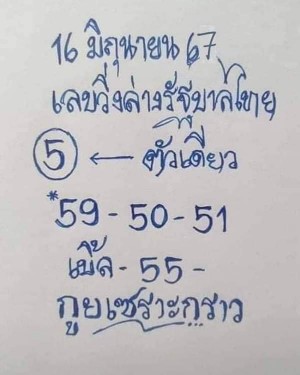 16 มิถุนายน 67
เลขวิ่งล่างรัฐบาลไทย
5 ← ตัวเดียว
*59 - 50 - 51
เบิ้ล - 55 -
กูยเซราะกราว